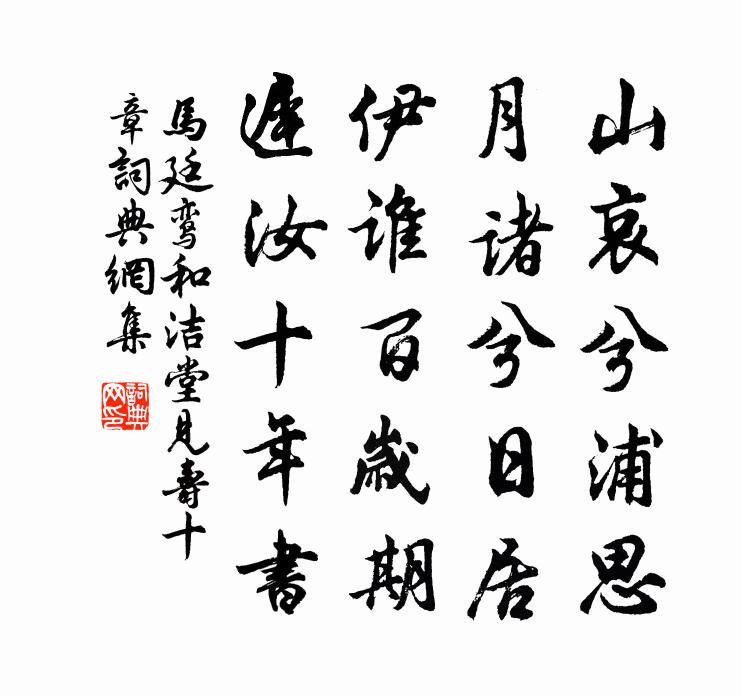 山哀兮浦思
月诸兮日居
伊谁百歲期
遲汝十年書
馬廷鸾和洁堂見壽十
章詞典網集
詞典網印